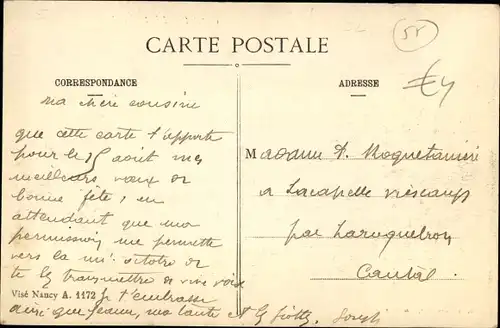 55
CARTE POSTALE
CORRESPONDANCE
ADRESSE
€4
Ma chère cousine
que cette carte t'apporte
pour le 15 août mes
meilleurs vœux de
bonne fête ; en
attendant que ma
permission me permette
vers la mi octobre de
te les transmettre de vive voix
Visé Nancy A. 1172 Je t'embrasse
ainsi que Jeanne, ma tante et les Joseph
Madame A.
a Lacapelle Viescamp
par Laroquebrou
Cantal